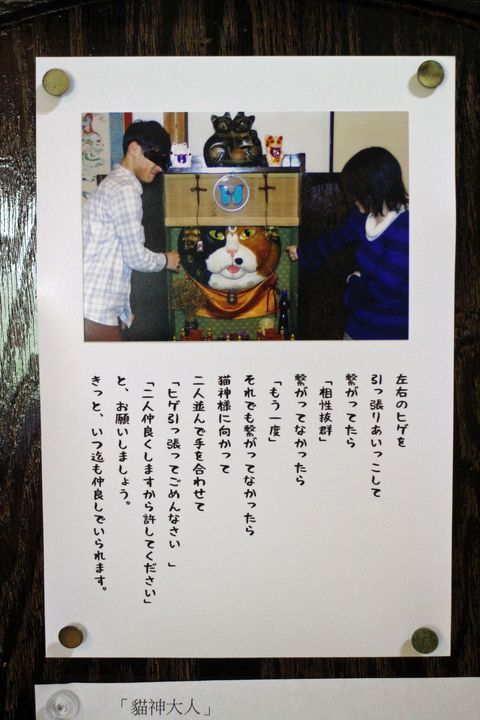 左右のヒゲを
引っ張りあいっこして
繋がってたら
「相性抜群」
繋がってなかったら
「もう一度」
それでも繋がってなかったら
猫神様に向かって
二人並んで手を合わせて
「ヒゲ引っ張ってごめんなさい 」
「二人仲良くしますから許してください」
と、お願いしましょう。
きっと、いつ迄も仲良しでいられます。
「貓神大人」